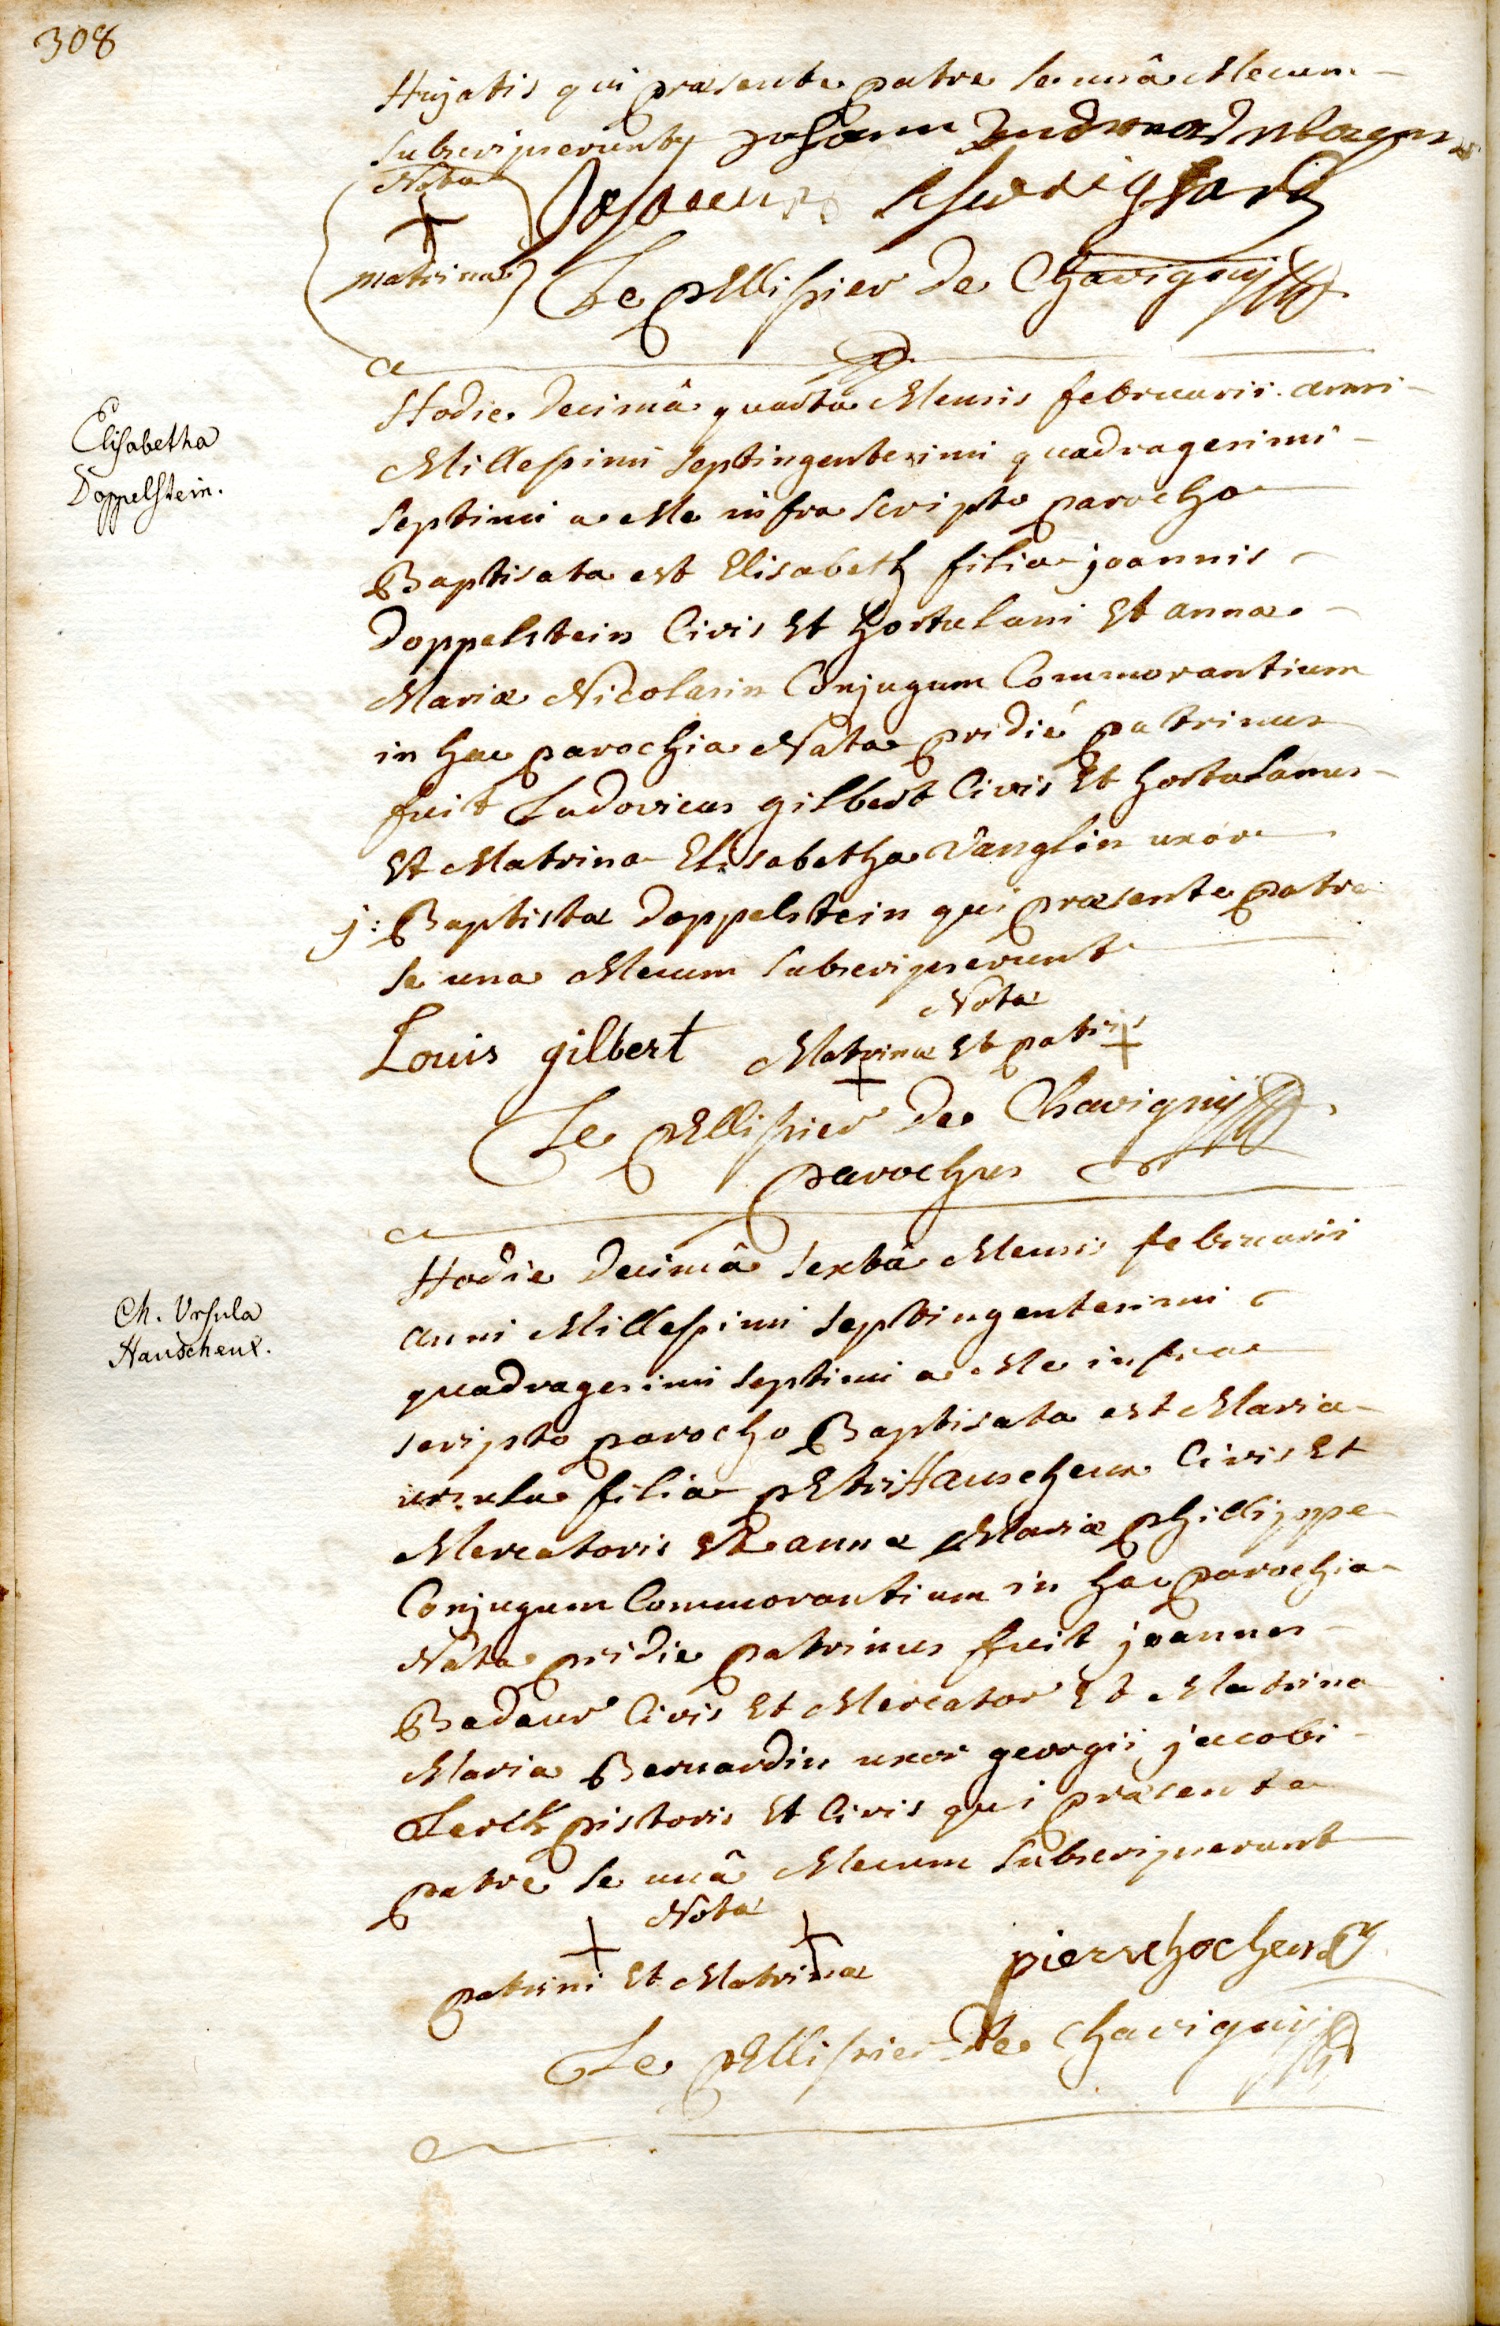 308
Hujatis qui præsente patre se unâ Mecum
subscripserunt Johann
Nota
matrinæ
Le pEllissier De Chavignÿ
Elisabetha
Doppelstein.
Hodie Decimâ quarta Mensis februarii anni
Millesimi septingentesimi quadragesimi
septimi a Me infra scripto parocho
Baptisata est Elisabeth filia joannis
Doppelstein Civis Et hortulani Et annæ
Mariæ Nicolasin Conjugum Commorantium
in hac parochia Nata pridié patrinus
fuit Ludovicus gilbert Civis Et hortulanus
Et Matrina Elisabetha Vanglin uxor
j: Baptistæ Doppelstein qui præsente patre
se una Mecum subscripserunt
Nota
Louis gilbert Matrinæ Et patris
Le pEllissier De Chavignÿ
parochus
Ch. Ursula
Hauscheux.
Hodie Decimâ sextâ Mensis februarii
anni Millesimi septingentesimi
quadragesimi septimi a Me infra
scripto parocho Baptisata est Maria
ursula filia pEtri Hauscheux Civis Et
Mercatoris Et annæ Mariæ phillippe
Conjugum Commorantium in hac parochia
Nata pridie patrinus fuit joannes
Badaur Civis Et Mercator Et Matrina
Maria Bernardin uxor georgii jacobi
Lerck pistoris Et Civis qui præsente
patre se unâ Mecum subscripserunt
Nota
patrini Et Matrinæ pierre hocheux
Le pEllissier De Chavignÿ